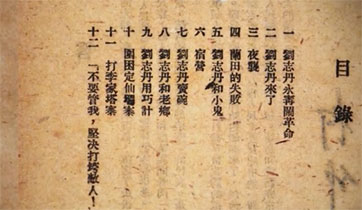 目錄
一 劉志丹永壽鬧革命
二 劉志丹來了
三 夜襲
四 蘭田的失敗
五 劉志丹和小鬼
六 宿營
七 劉志丹賣碗
八 劉志丹和老鄉
九 劉志丹用巧計
十 圍困定仙墕寨
十一 打李家塔寨
十二 「不要管我，堅决打垮敵人！」